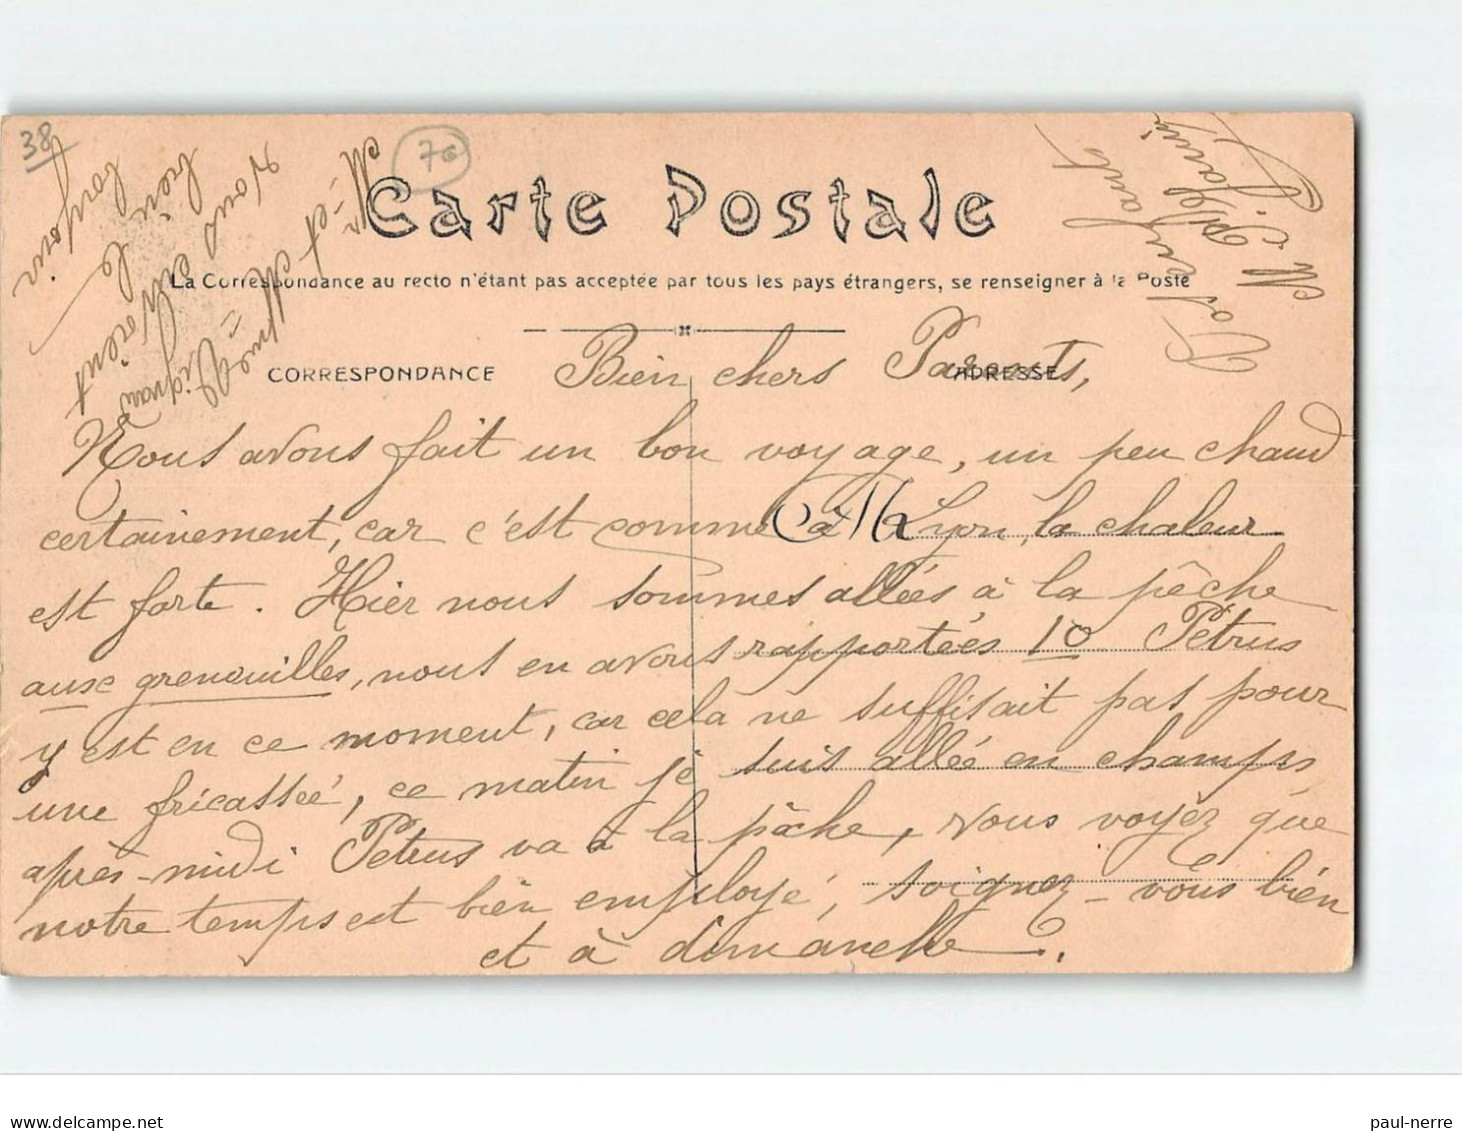 38
70
Carte Postale
La Correspondance au recto n'étant pas acceptée par tous les pays étrangers, se renseigner à la Poste
CORRESPONDANCE
ADRESSE
Bien chers Parents,
Nous avons fait un bon voyage, un peu chaud
certainement, car c'est comme à Lyon, la chaleur
est forte. Hier nous sommes allées à la pêche
aux grenouilles, nous en avons rapportées 10 Pétrus
y est en ce moment, car cela ne suffisait pas pour
une fricassée, ce matin je suis allée en champs
après-midi Petrus va à la pêche, vous voyez que
notre temps est bien employé, soignez-vous bien
et à dimanche.
Vos enfants
M. P.
Mr et Mme Vignau
Vous envoient
bien le
bonjour
paul-nerre